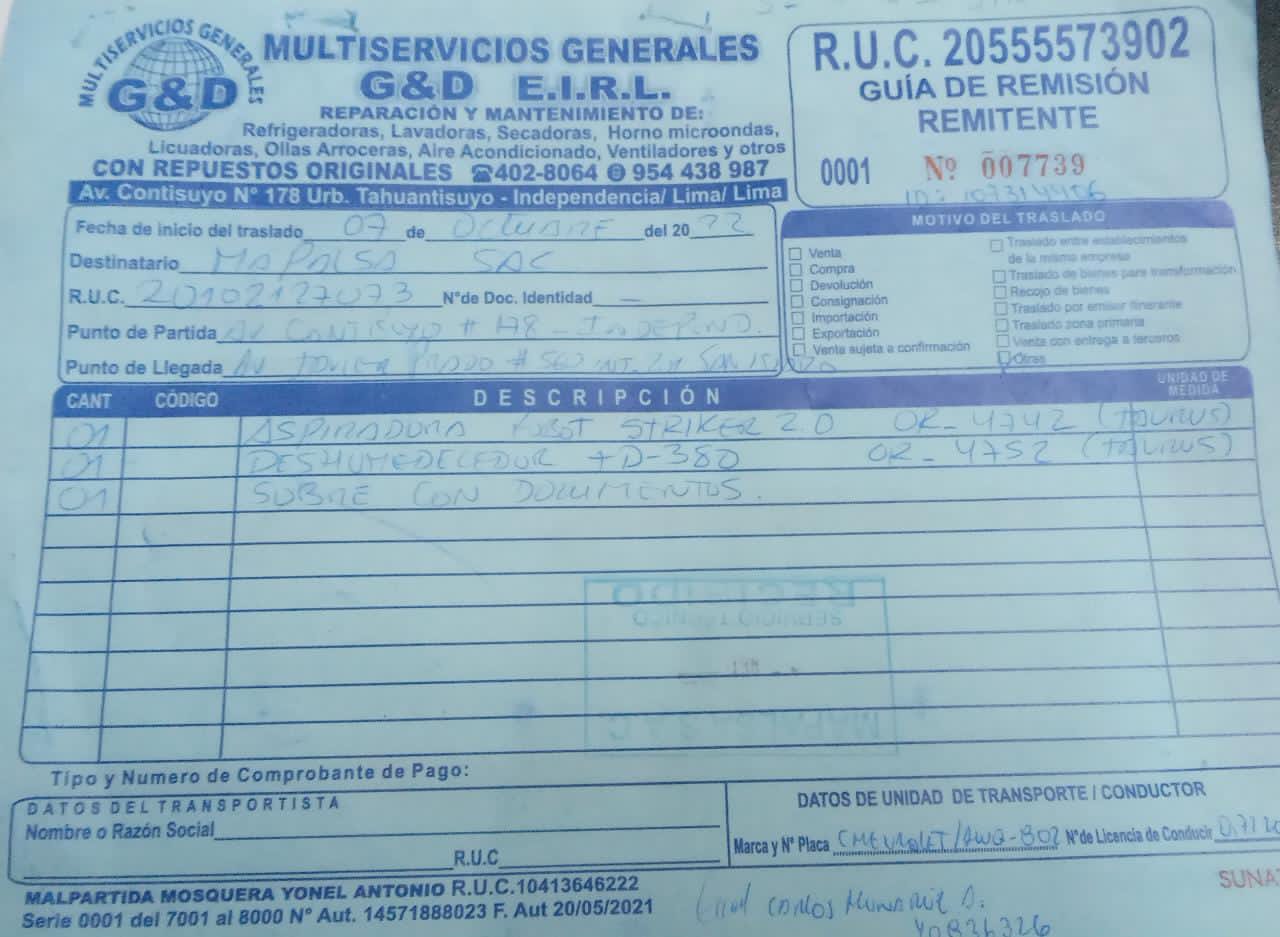 MULTISERVICIOS GENERALES
G&D
MULTISERVICIOS GENERALES
G&D E.I.R.L.
REPARACIÓN Y MANTENIMIENTO DE:
Refrigeradoras, Lavadoras, Secadoras, Horno microondas,
Licuadoras, Ollas Arroceras, Aire Acondicionado, Ventiladores y otros
CON REPUESTOS ORIGINALES ☎402-8064 954 438 987
Av. Contisuyo N° 178 Urb. Tahuantisuyo - Independencia/ Lima/ Lima
R.U.C. 20555573902
GUÍA DE REMISIÓN
REMITENTE
0001 Nº 007739
ID: 107314406
Fecha de inicio del traslado 07 de OCTUBRE del 2022
Destinatario MAPALSA SAC
R.U.C. 20102127073 N°de Doc. Identidad —
Punto de Partida AV CONTISUYO # 178 - INDEPEND.
Punto de Llegada AV JAVIER PRADO # 560 INT. SAN ISIDRO
MOTIVO DEL TRASLADO
Venta
Compra
Devolución
Consignación
Importación
Exportación
Venta sujeta a confirmación
Traslado entre establecimientos
de la misma empresa
Traslado de bienes para transformación
Recojo de bienes
Traslado por emisor itinerante
Traslado zona primaria
Venta con entrega a terceros
Otras
CANT CÓDIGO DESCRIPCIÓN UNIDAD DE MEDIDA
01 ASPIRADORA ROBOT STRIKER 2.0 OR-4742 (TAURUS)
01 DESHUMEDECEDOR TD-380 OR-4752 (TAURUS)
01 SOBRE CON DOCUMENTOS.
RECIBIDO
SERVICIO TECNICO
MAPALSA S.A.C
Tipo y Numero de Comprobante de Pago:
DATOS DEL TRANSPORTISTA
Nombre o Razón Social
R.U.C
DATOS DE UNIDAD DE TRANSPORTE / CONDUCTOR
Marca y N° Placa CHEVROLET/AWQ-802 N°de Licencia de Conducir
MALPARTIDA MOSQUERA YONEL ANTONIO R.U.C.10413646222
Serie 0001 del 7001 al 8000 N° Aut. 14571888023 F. Aut 20/05/2021
SUNAT
CARLOS
40836326